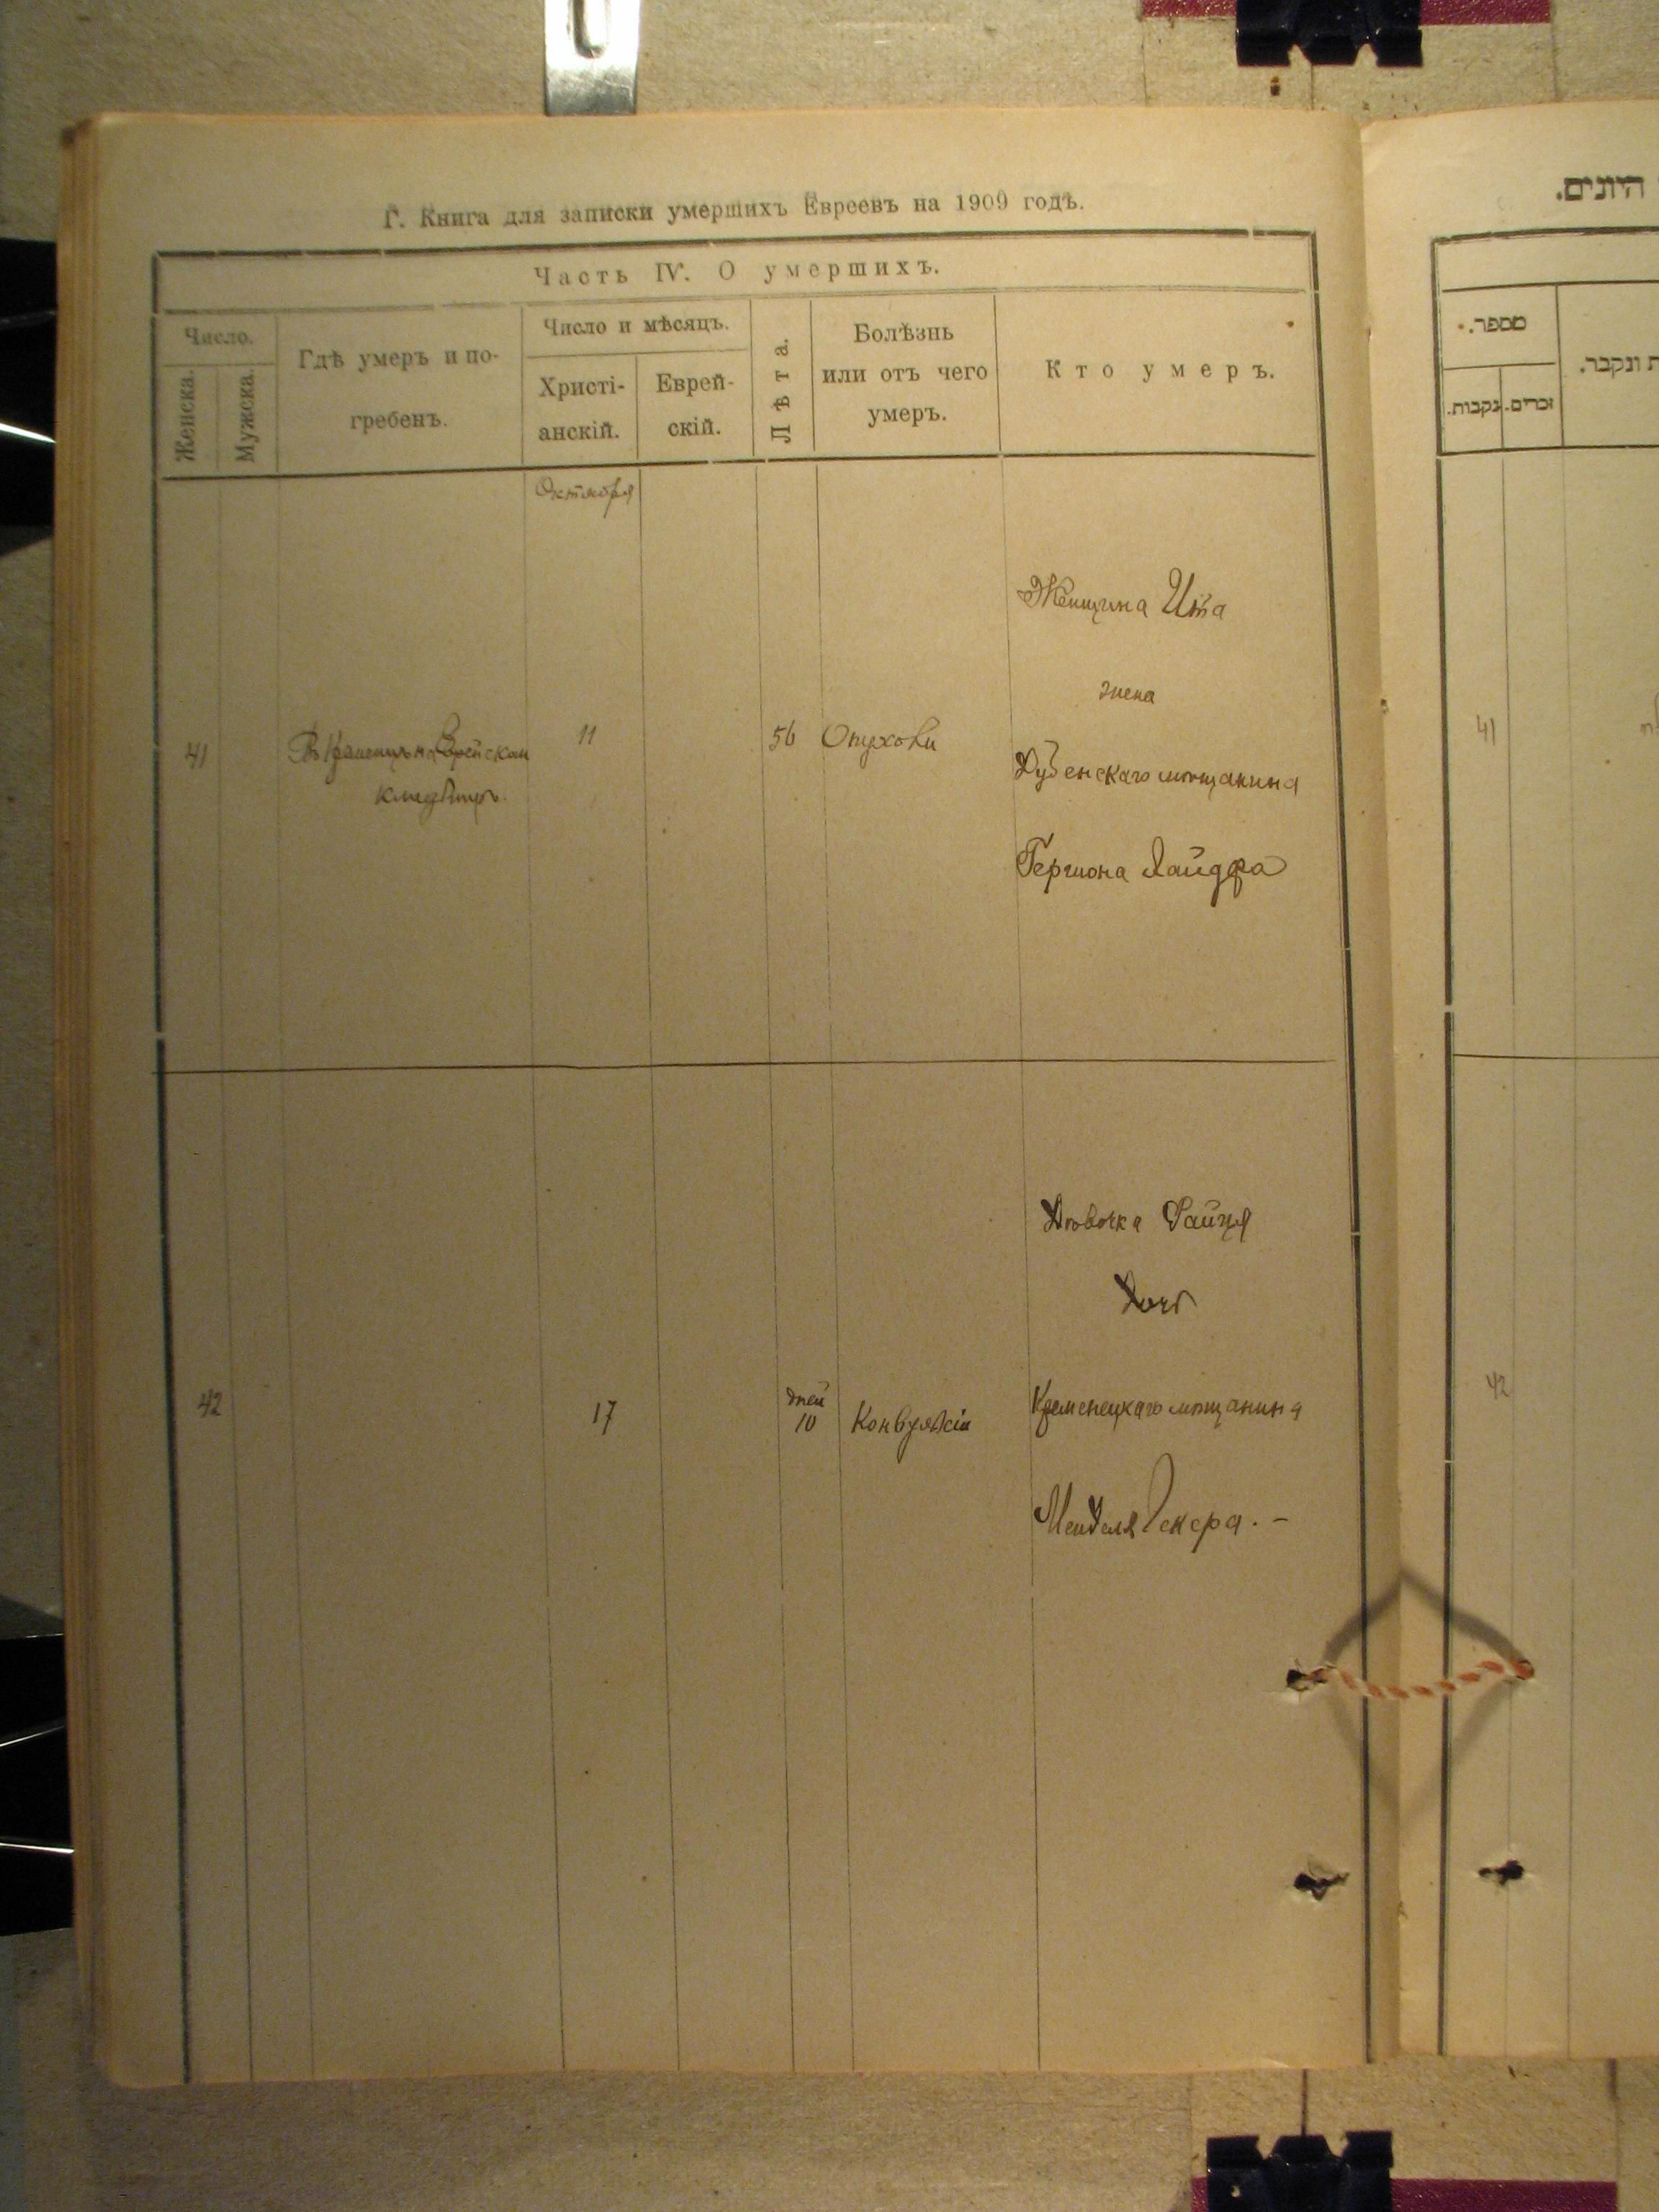 Г. Книга для записки умершихъ Евреевъ на 1909 годъ.
Часть IV. О умершихъ.
Число.
Женска.
Мужска.
Гдѣ умеръ и по-
гребенъ.
Число и мѣсяцъ.
Христі-
анскій.
Еврей-
скій.
Лѣта.
Болѣзнь
или отъ чего
умеръ.
Кто умеръ.
Октября
41
Въ Кременцѣ на Еврейском
кладбищѣ.
11
56
Опухоли
Женщина Ита
жена
Дубенскаго мѣщанина
Гершона
42
17
дней
10
Конвульсіи
Дѣвочка
Дочь
Кременецкаго мѣщанина
Менделя
היונים.
מספר.
נקבות.
זכרים.
ונקבר.
41
42